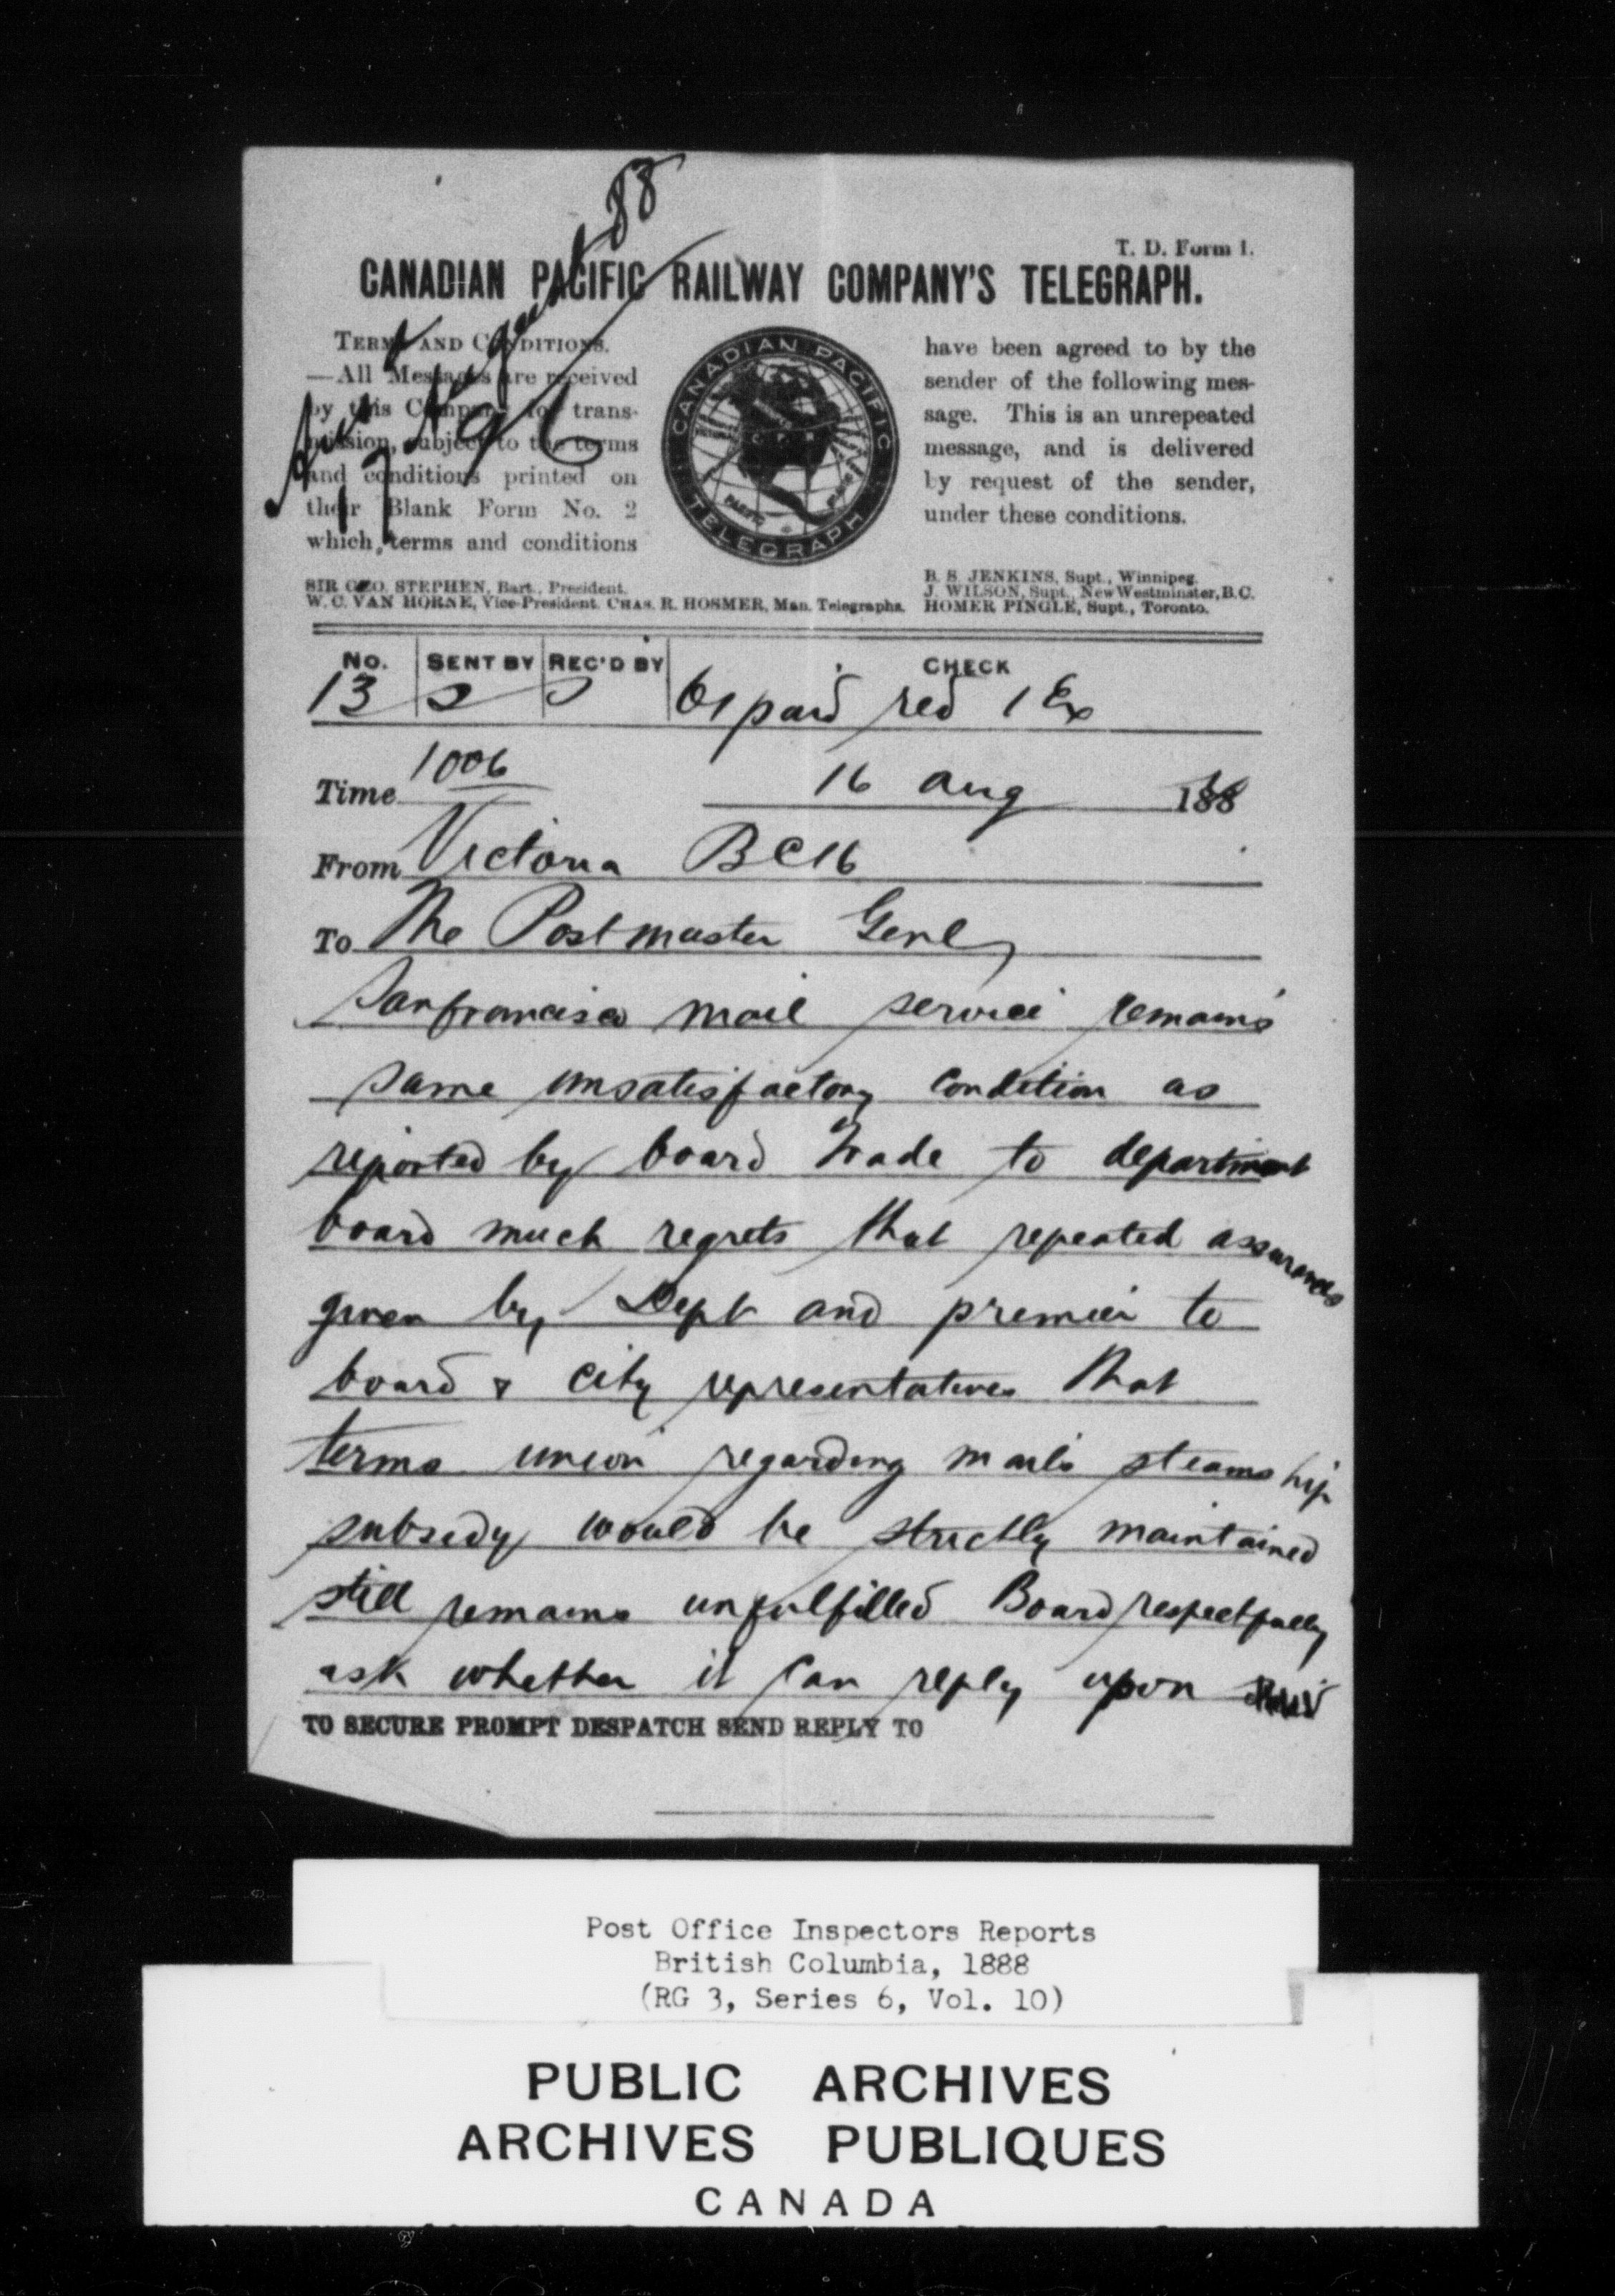 88
T. D. Form 1.
CANADIAN PACIFIC RAILWAY COMPANY'S TELEGRAPH.
TERMS AND CONDITIONS.
—All Messages are received
by this Company for trans-
mission, subject to the terms
and conditions printed on
their Blank Form No. 2
which, terms and conditions
CANADIAN PACIFIC
TELEGRAPH
have been agreed to by the
sender of the following mes-
sage. This is an unrepeated
message, and is delivered
by request of the sender,
under these conditions.
SIR GEO. STEPHEN, Bart., President.
W. C. VAN HORNE, Vice-President. CHAS. R. HOSMER, Man. Telegraphs.
B. S. JENKINS, Supt., Winnipeg.
J. WILSON, Supt., New Westminster, B.C.
HOMER PINGLE, Supt., Toronto.
No. SENT BY REC'D BY CHECK
13 S S 61 paid red 1 Ex
Time 1006 16 Aug 188
From Victoria BC 16
To The Postmaster Genl
Sanfrancisco mail service remains
same unsatisfactory condition as
reported by board trade to department
board much regrets that repeated assurances
given by Dept and premier to
board & city representatives that
terms union regarding mails steamship
subsidy would be strictly maintained
still remains unfulfilled Board respectfully
ask whether it can reply upon
TO SECURE PROMPT DESPATCH SEND REPLY TO
Post Office Inspectors Reports
British Columbia, 1888
(RG 3, Series 6, Vol. 10)
PUBLIC ARCHIVES
ARCHIVES PUBLIQUES
CANADA